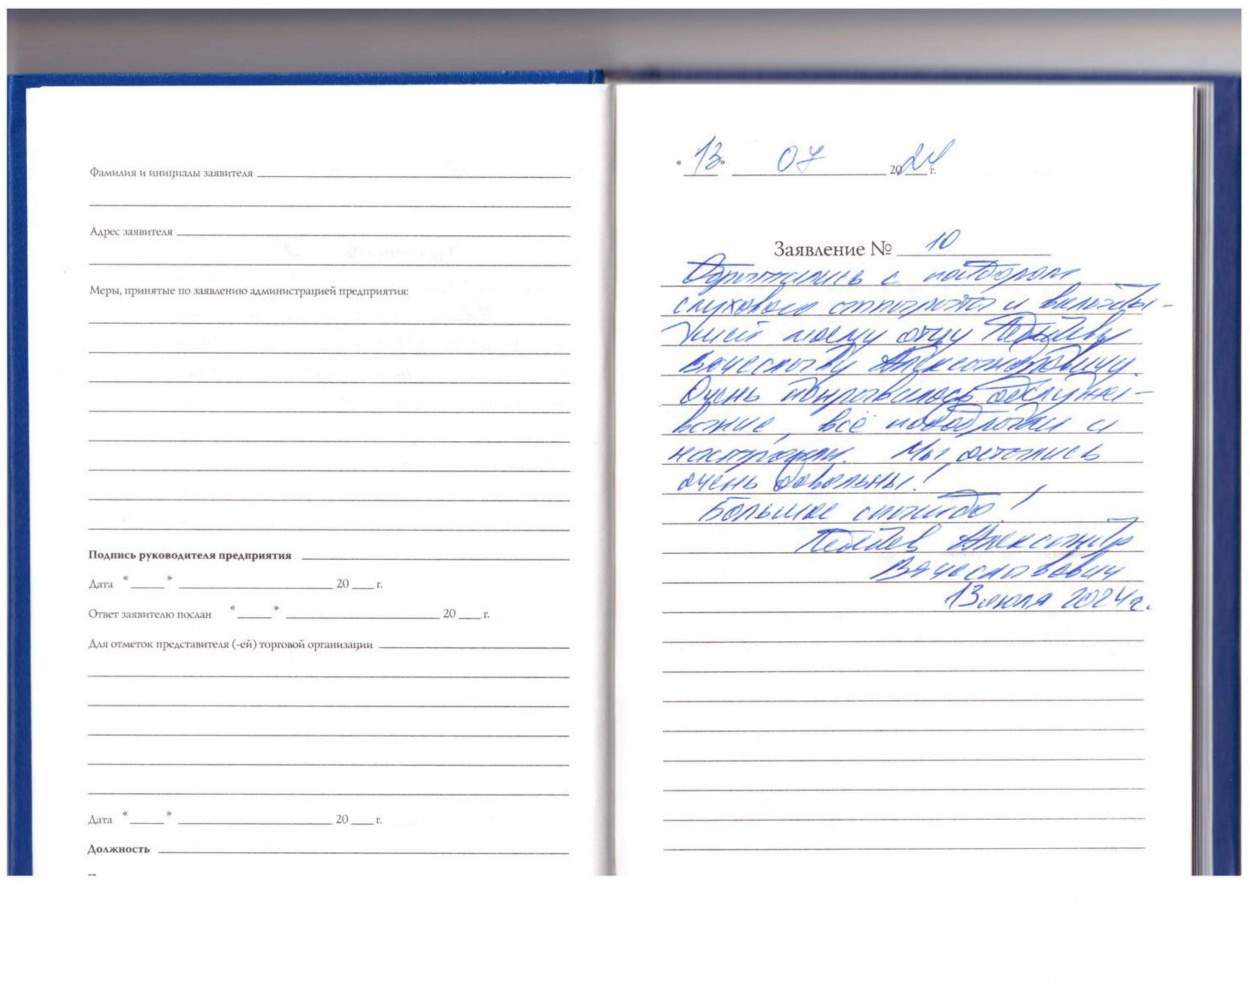 Фамилия и инициалы заявителя
Адрес заявителя
Меры, принятые по заявлению администрацией предприятия:
Подпись руководителя предприятия
Дата " " 20 г.
Ответ заявителю послан " " 20 г.
Для отметок представителя (-ей) торговой организации
Дата " " 20 г.
Должность
"13" 07 2024 г.
Заявление № 10
Обратились с подбором
слухового аппарата и вклады-
шей моему отцу
Вячеславу Александровичу.
Очень понравилось обслужи-
вание, всё подобрали и
настроили. Мы остались
очень довольны!
Большое спасибо!
Александр
Вячеславович
13 июля 2024 г.